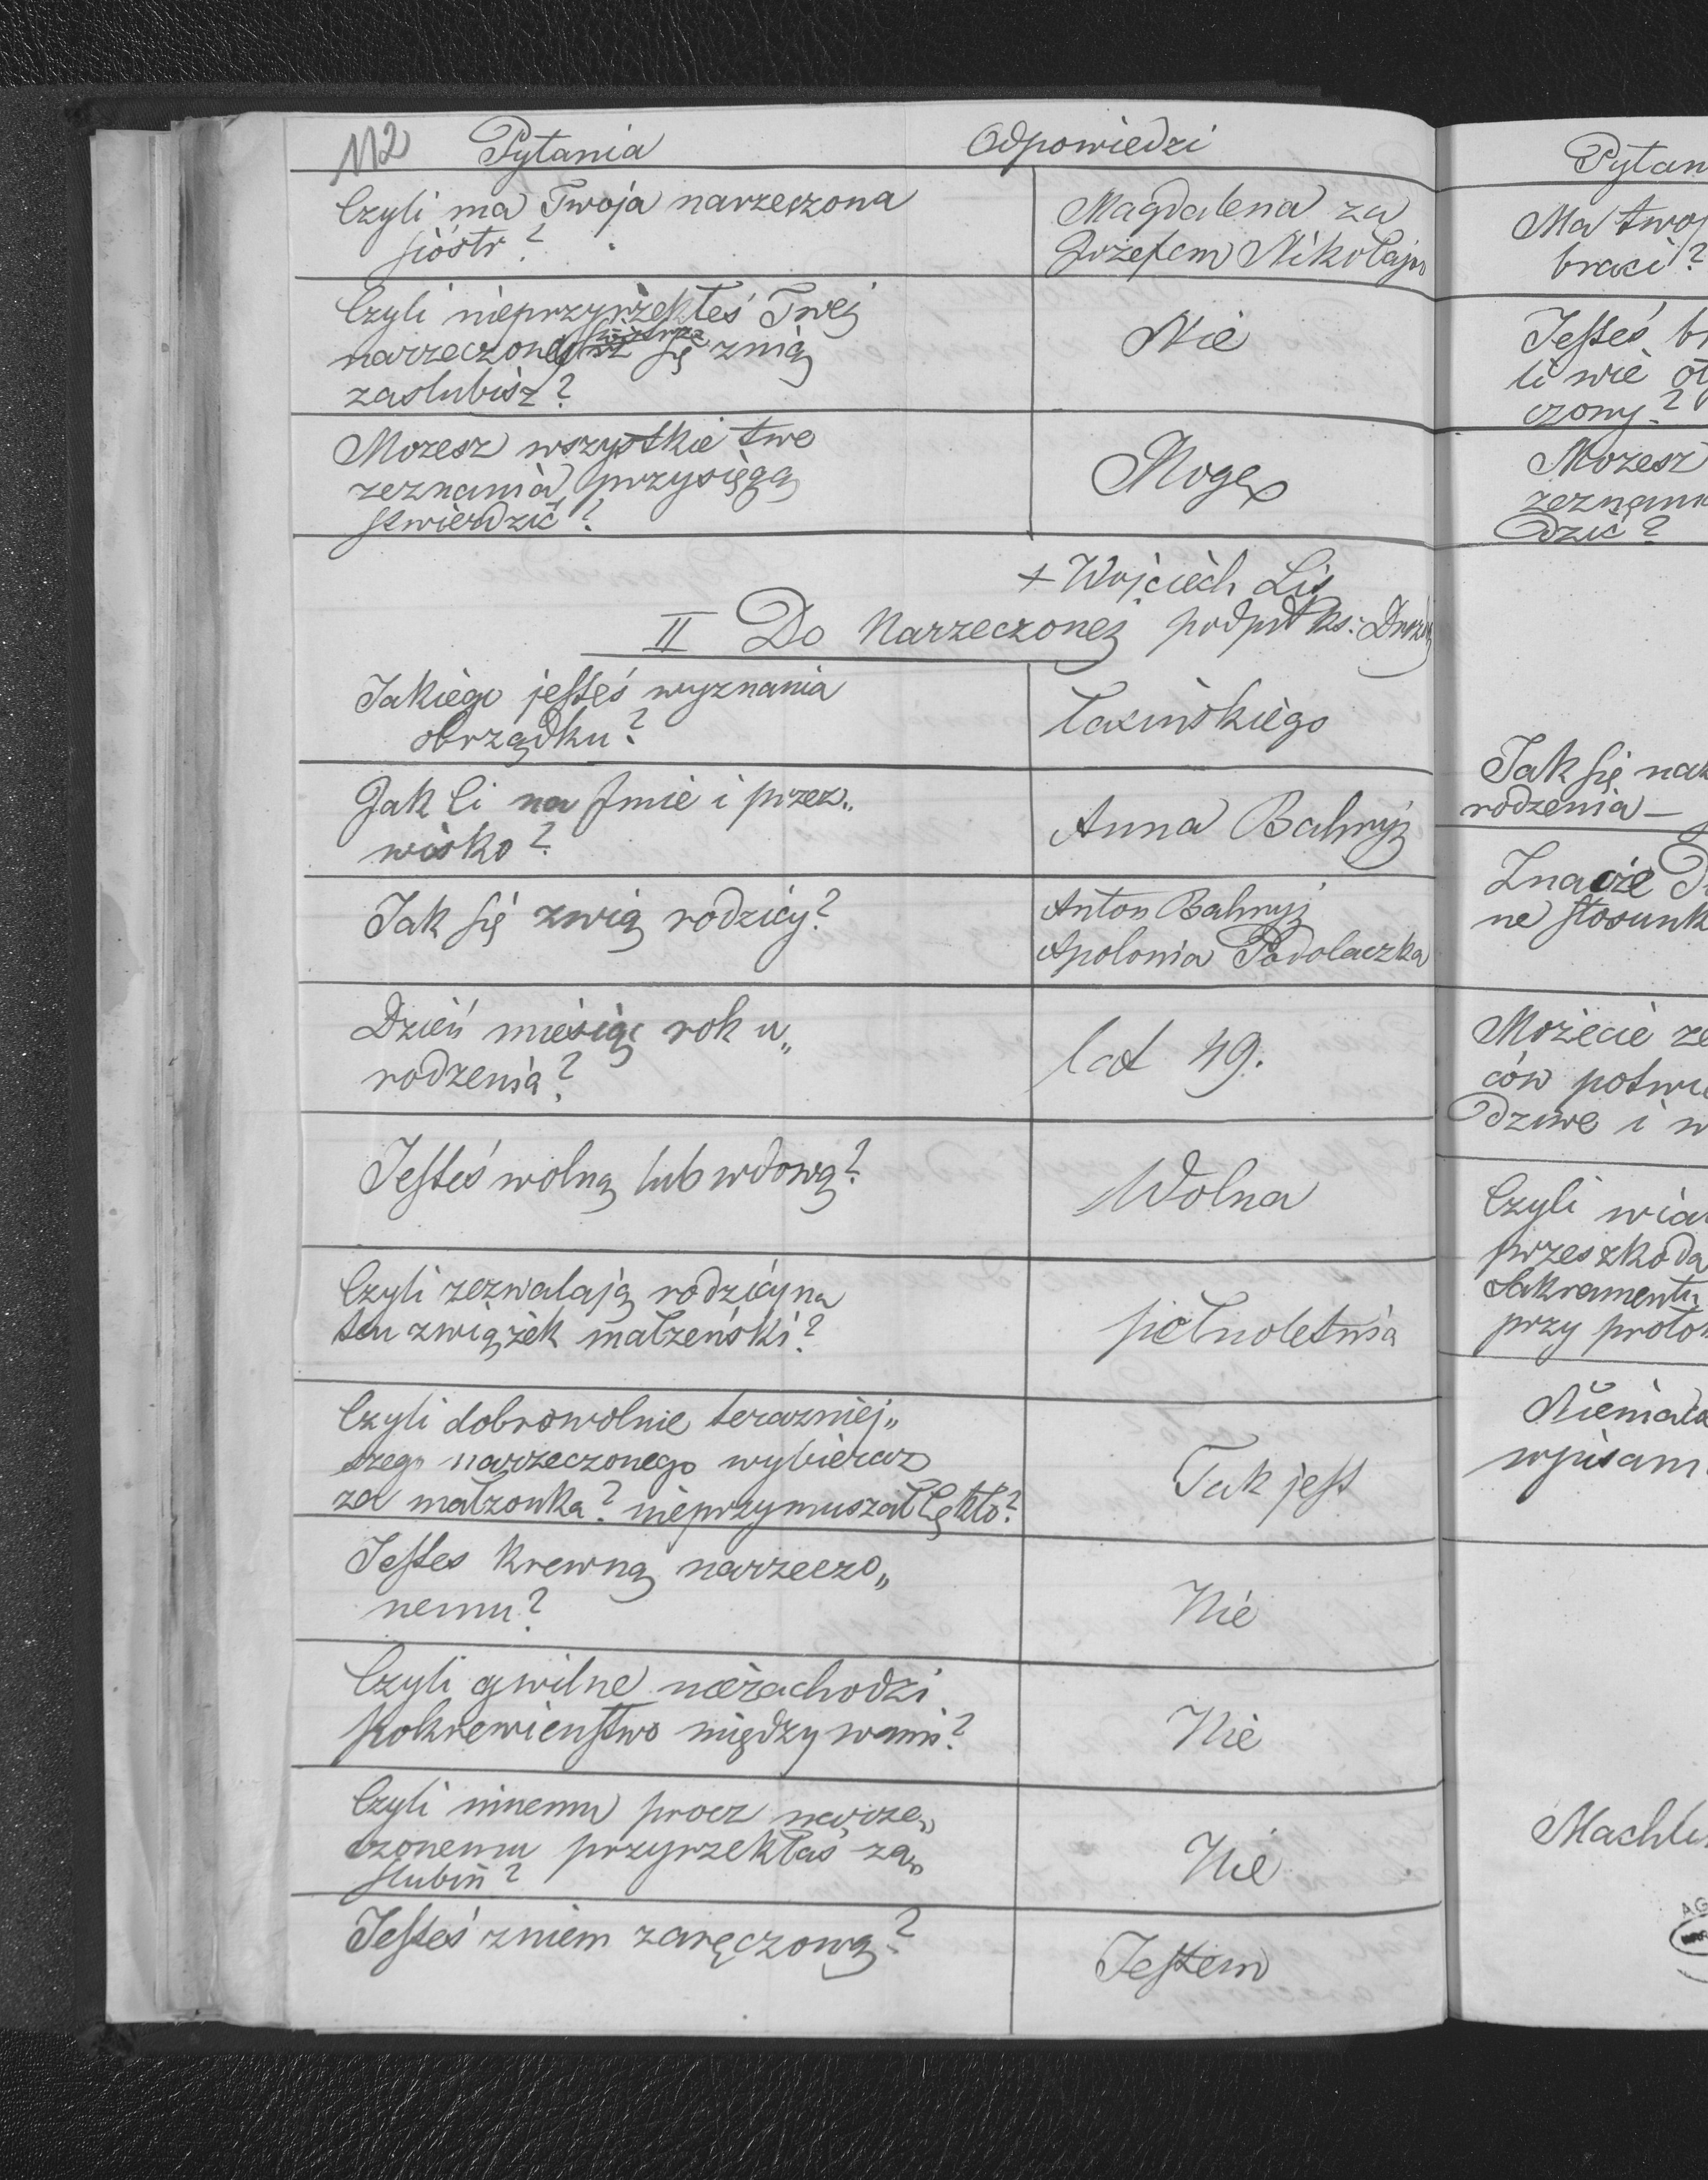 112 Pytania Odpowiedzi
Czyli ma Twoja narzeczona
sióstr?
Magdalena za
Józefem Nikołajem
Czyli nieprzyrzekłeś Twej
narzeczonej się z nią
zaslubisz?
Nie
Mozesz wszystkie twe
zeznania przysięgą
stwierdzić?
Mogę
+ Wojciech Lis
II Do Narzeczonej podpis ks:
Jakiego jesteś wyznania
obrządku?
Łacińskiego
Jak Ci na Imie i przez„
wisko?
Anna Bahryj
Jak się zwią rodzicy?
Anton Bahryj
Apolonia Podolaczka
Dzień miesiąc rok u„
rodzenia?
lat 49.
Jesteś wolną lub wdową?
Wolna
Czyli zezwalają rodzicy na
ten związek małzeński?
pełnoletnia
Czyli dobrowolnie terazniej„
szego narzeczonego wybieraz
za małzonka? nieprzymuszał Cę kto?
Tak jest
Jestes krewną narzeczo„
nemu?
Nie
Czyli cywilne niezachodzi
pokrewieństwo między wami?
Nie
Czyli innemu procz narze„
czonemu przyrzekłaś za„
slubin?
Nie
Jesteś zniem zaręczoną?
Jestem
Pytan
Ma twoj
braci?
Jesteś br
li nie
czony?
Mozesz
zeznania
dzić?
Jak się naz
rodzenia –
Znacie
ne stosunk
Możecie ze
ców potwie
dziwe i w
Czyli wia
przeszkoda
Sakramentu
przy protok
Niemała
wpisam
AG